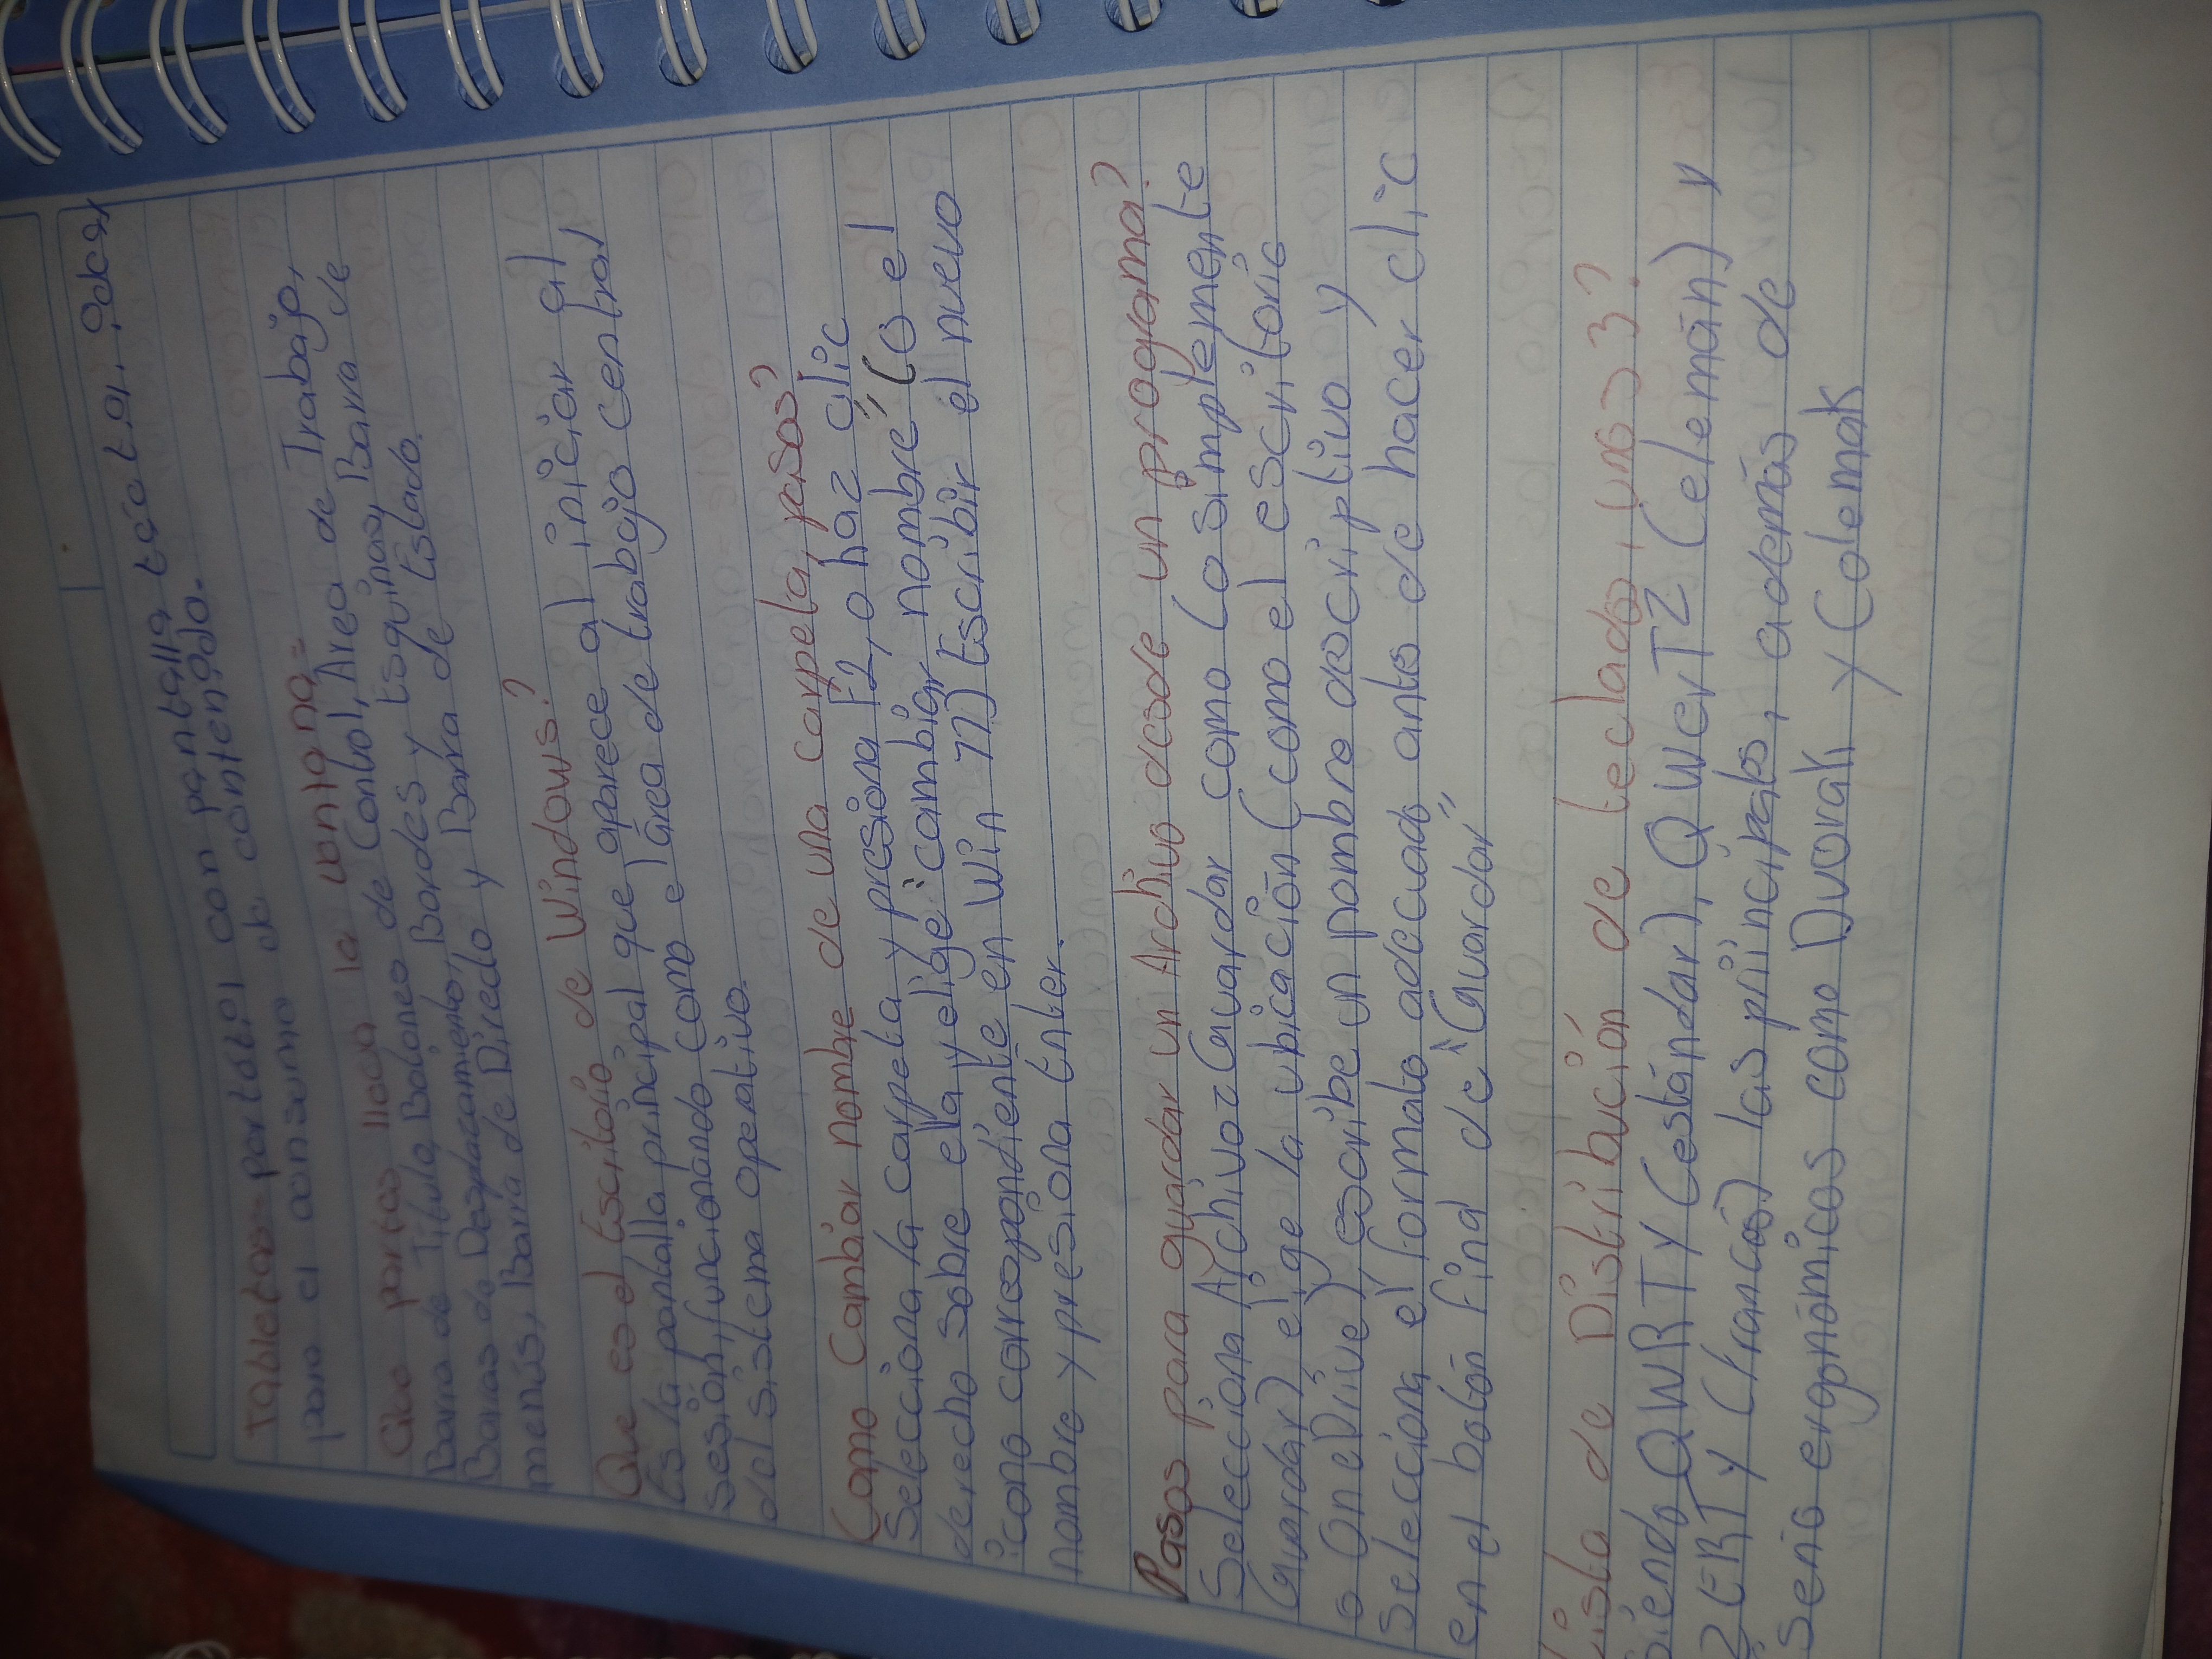 Tabletas= portátil con pantalla táctil, ideal
para el consumo de contenido.
Que partes lleva la ventana=
Barra de Título, Botones de Control, Area de Trabajo,
Barras de Desplazamiento, Bordes y Esquinas, Barra de
menús, Barra de Directo y Barra de Estado.
Que es el Escritorio de Windows?
Es la pantalla principal que aparece al iniciar al
sesión, funcionando como el área de trabajo central
del sistema operativo.
Como Cambiar nombre de una carpeta, pasos?
Selecciona la carpeta y presiona F2, o haz clic
derecho sobre ella y elige "cambiar nombre" (o el
icono correspondiente en Win 11) Escribir el nuevo
nombre y presiona Enter.
Pasos para guardar un Archivo desde un programa?
Selecciona Archivo= Guardar como (o simplemente
Guardar) elige la ubicación (como el escritorio
o OneDrive), escribe un nombre descriptivo y
selecciona el formato adecuado antes de hacer clic
en el botón Final de "Guardar"
ista de Distribución de teclados, unos 3?
siendo QWRTY (estándar), QWERTZ (elemán) y
ZERTY (francés) las principales, además de
seño ergonómicos como Dvorak y Colemak